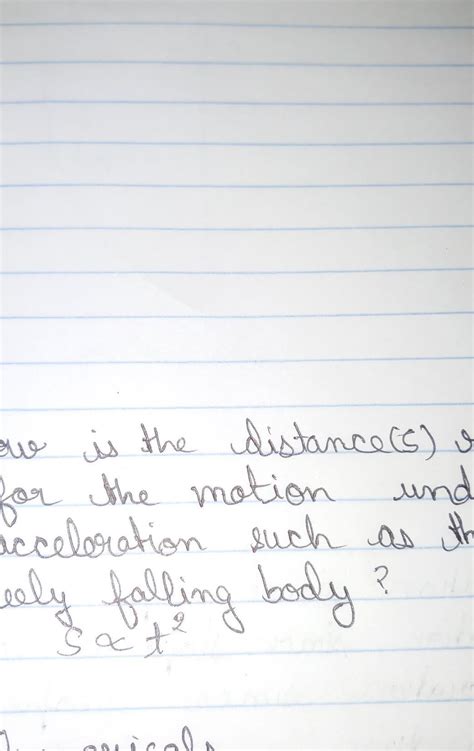 is the distance(s)
for the motion und
acceleration such as th
eely falling body?
S ∝ t²